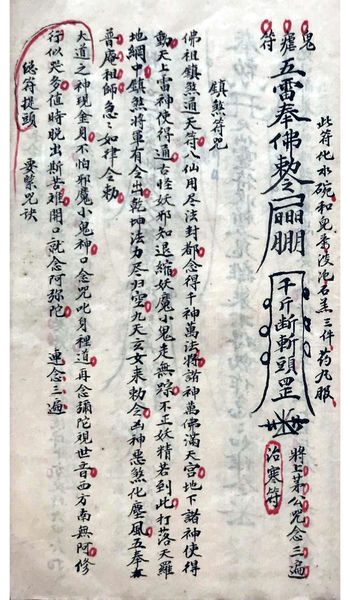 瘧符
此符化水碗和石羔三件药丸服
五雷奉佛敕令
千斤断斬頭罡
將上茅公咒念三遍
治寒符
鎮煞符咒
佛祖鎮煞通天符八仙用尽法封都念得千神萬法將諸神萬佛滿天宮地下諸神使得
動天上雷神使得通古怪妖邪知退縮妖魔小鬼走無踪不正妖精若到此打落天羅
地網中鎮煞將軍有令出乾坤法力尽归九天玄女來勅令凶神惡煞化塵風五奉
普庵祖師急々如律令勅
大道之神現金身不怕邪魔小鬼神口念咒此身裡道再念彌陀視世音西方南無阿修
行似災多值時脫出斯苦難開口就念阿弥陀 連念三遍
總符提頭 要緊咒訣